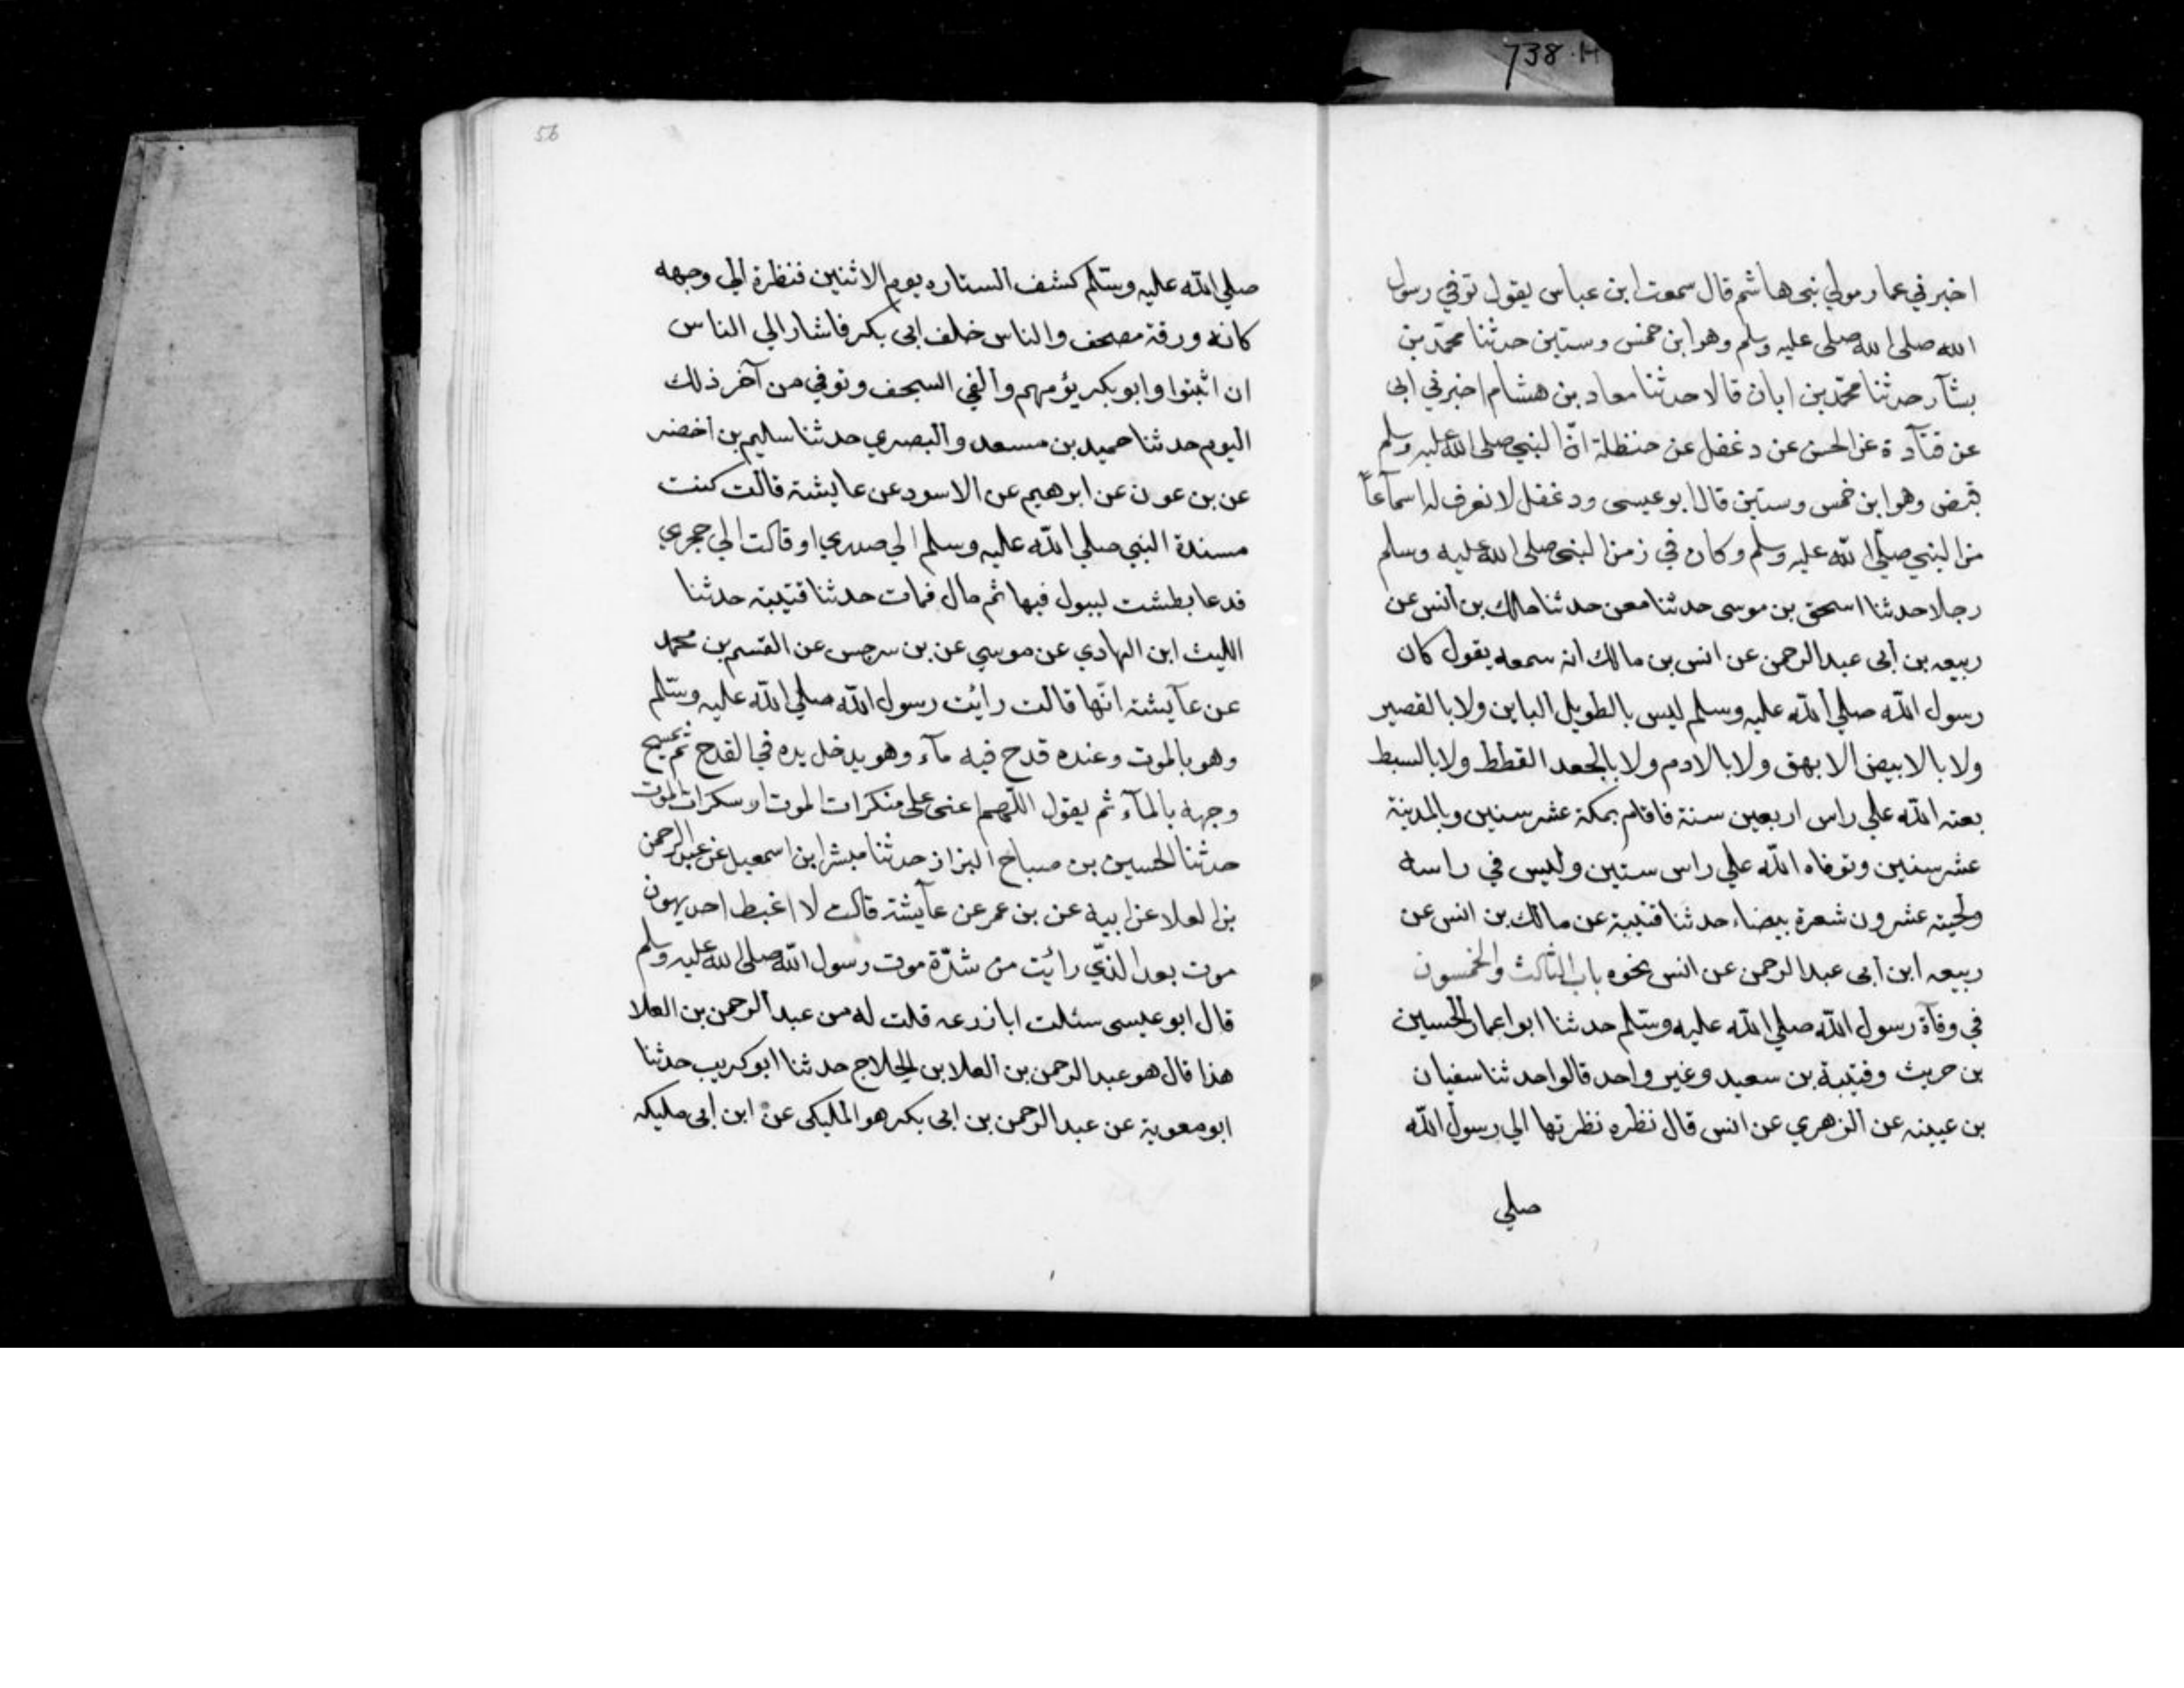 738.H
اخبرني عمار مولي بنى هاشم قال سمعت ابن عباس يقول توفي رسول
الله صلى الله صلى عليه وسلم وهو ابن خمس وستين حدثنا محمد بن
بشآر حدثنا محمد بن ابان قالا حدثنا معاد بن هشام اخبرني ابى
عن قتآدة عن الحسن عن دغفل عن حنظلة انّ النبي صلى الله عليه وسلم
قبض وهو ابن خمس وستين قال ابو عيسى ودغفل لا نعرف له اسمآعاً
من النبي صلّى الله عليه وسلم وكان في زمن النبى صلى الله عليه وسلم
رجلا حدثنا اسحق بن موسى حدثنا معن حدثنا مالك بن انس عن
ربيعه بن ابى عبد الرحمن عن انس بن مالك انه سمعه يقول كان
رسول الله صلي الله عليه وسلم ليس بالطويل الباين ولا بالقصير
ولا بالابيض الابهق ولا بالادم ولا بالجعد القطط ولا بالسبط
بعثه الله علي راس اربعين سنة فاقام بمكة عشر سنين وبالمدينة
عشر سنين وتوفاه الله علي راس ستين وليس في راسه
ولحيته عشرون شعرة بيضاء حدثنا قتيبة عن مالك بن انس عن
ربيعه ابن ابى عبد الرحمن عن انس نحوه باب الثالث والخمسون
في وفآة رسول الله صلي الله عليه وسلّم حدثنا ابو اعمار الحسين
بن حريث وقتيبة بن سعيد وغير واحد قالوا حدثنا سفيان
بن عيينه عن الزهري عن انس قال نظره نظرتها الي رسول الله
صلي
56
صلي الله عليه وسلّم كشف الستاره يوم الاثنين فنظرة الي وجهه
كانه ورقة مصحف والناس خلف ابى بكر فاشار الي الناس
ان اثبتوا وابو بكر يؤمهم والقي السجف وتوفي من آخر ذلك
اليوم حدثنا حميد بن مسعد والبصري حدثنا سليم بن اخضر
عن بن عون عن ابرهيم عن الاسود عن عايشة قالت كنت
مسندة النبي صلي الله عليه وسلم الي صدري او قالت الي حجري
فدعا بطشت ليبول فيها ثم مال فمات حدثنا قتيبة حدثنا
الليث ابن الهادي عن موسي عن بن سرجس عن القسم بن محمد
عن عآيشة انّها قالت رائت رسول الله صلي الله عليه وسّلم
وهو بالموت وعنده قدح فيه مآء وهو يدخل يده في القدح ثم يمسح
وجهه بالمآء ثم يقول اللّهم اعنى على منكرات الموت او سكرات الموت
حدثنا الحسين بن صباح البزاز حدثنا مبشر ابن اسمعيل عن عبد الرحمن
بن العلا عن ابيه عن بن عمر عن عآيشة قالت لا اغبط احد يهون
موت بعد الذّي رائت من شدّة موت رسول الله صلى الله عليه وسلم
قال ابو عيسى سئلت ابا زرعه قلت له من عبد الرحمن بن العلا
هذا قال هو عبد الرحمن بن العلا بن الجلاج حدثنا ابو كريب حدثنا
ابو معوية عن عبد الرحمن بن ابى بكر هو المليكى عن ابن ابى مليكه